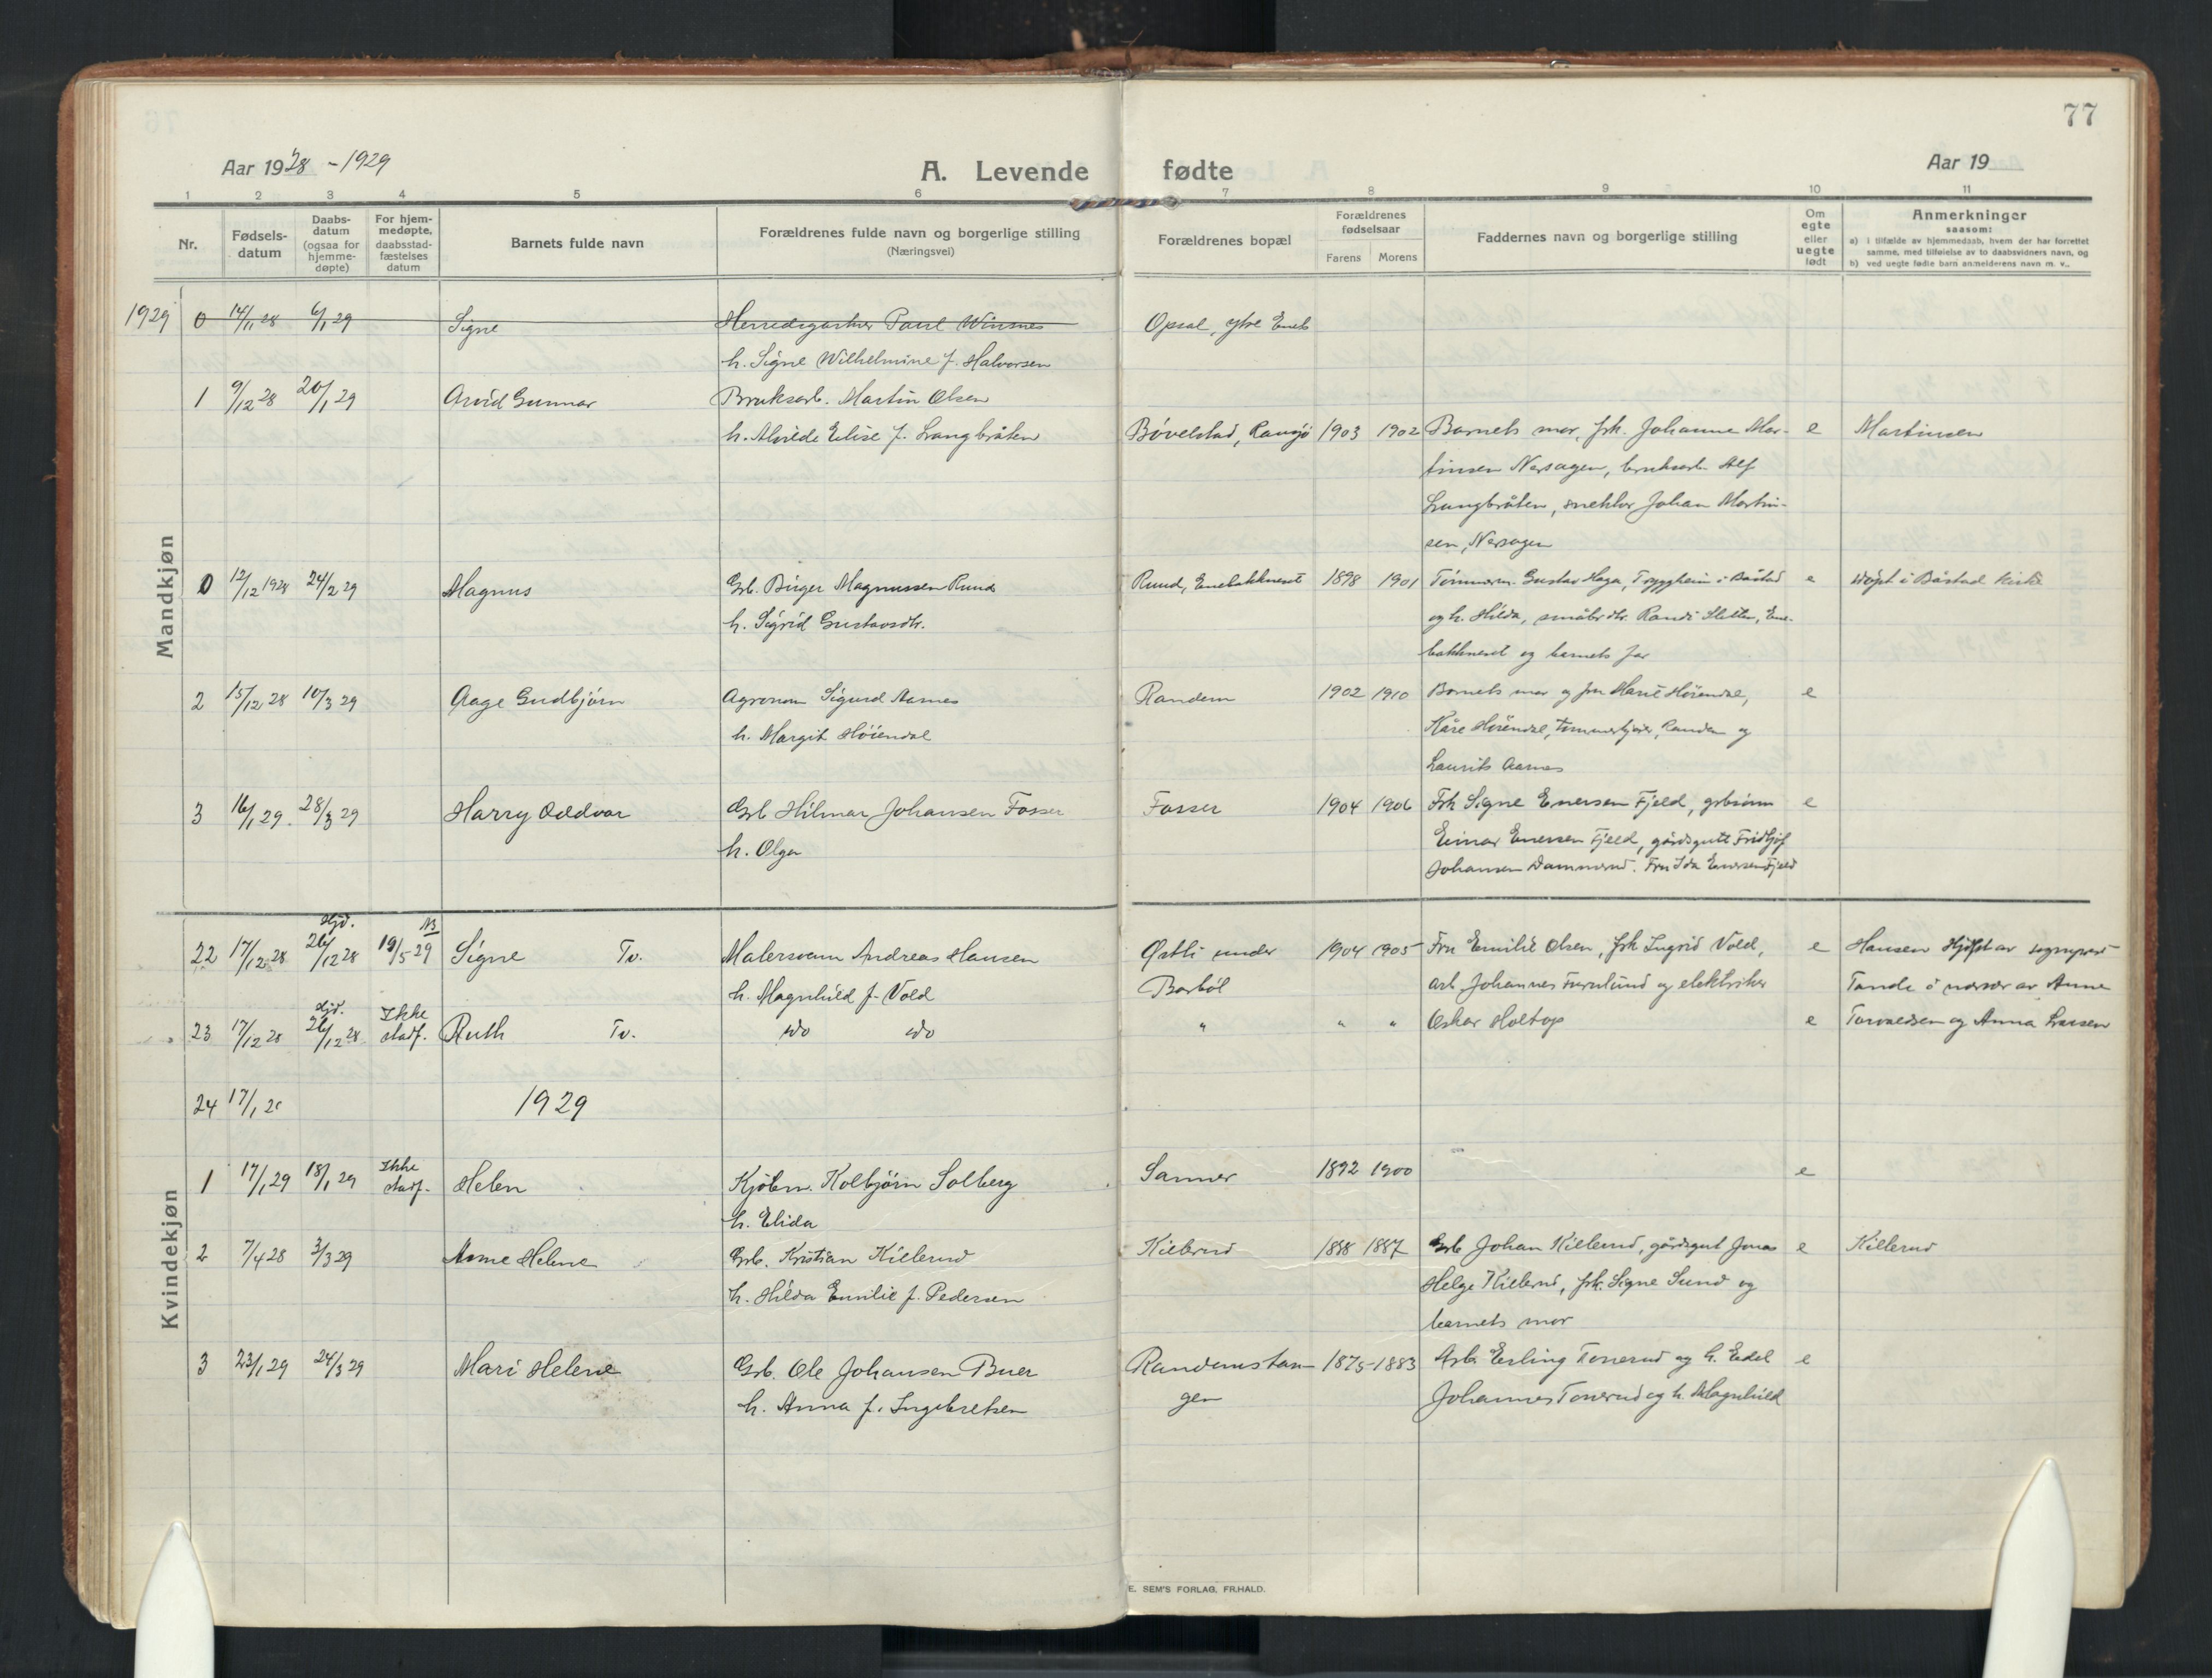 77
Aar 1928 - 1929
A. Levende fødte
Aar 19
1 2 3 4 5 6 7 8 9 10 11
Nr.
Fødsels-
datum
Daabs-
datum
(ogsaa for
hjemme-
døpte)
For hjem-
medøpte,
daabsstad-
fæstelses
datum
Barnets fulde navn
Forældrenes fulde navn og borgerlige stilling
(Næringsvei)
Forældrenes bopæl
Forældrenes
fødselsaar
Farens Morens
Faddernes navn og borgerlige stilling
Om
egte
eller
uegte
født
Anmerkninger
saasom:
a) i tilfælde av hjemmedaab, hvem der har forrettet
samme, med tilføielse av to daabsvidners navn, og
b) ved uegte fødte barn anmelderens navn m. v..
Mandkjøn
1929 0 14/11 28 6/1 29 Signe Herredsgartner Paul Winsnes Opsal, ytre Eneb
h. Signe Wilhelmine f. Halvorsen
1 9/12 28 20/1 29 Arvid Gunnar Bruksarb. Martin Olsen
h. Alvilde Elise f. Langbråten Bøvelstad, Ransjø 1903 1902 Barnets mor, frk. Johanne Mar- e Martinsen
tinsen Nersagen, bruksarb. Alf
Langbråten, snekker Johan Martin-
sen, Nersagen
0 12/12 1928 24/2 29 Magnus Grb. Birger Magnussen Ruud Ruud, Enebakkneset 1898 1901 Tømmerm. Gustav Haga, Tryggheim i Båstad e døpt i Båstad kirke
h. Sigrid Gustavsdtr. og h. Hilda, småbr.dtr. Randi Sletten, Ene-
bakkneset og barnets far
2 15/12 28 10/3 29 Aage Gudbjørn Agronom Sigurd Aarnes Randem 1902 1910 Barnets mor og fru Marie Høiendal, e
h. Margit Høiendal Kåre Høiendal, tømmerkjører, Randem og
Laurits Aarnes
3 16/1 29 28/3 29 Harry Oddvar Grb Hilmar Johansen Fosser Fosser 1904 1906 Frk Signe Enersen Fjeld, grbsønn e
h. Olga Einar Enersen Fjeld, gårdsgutt Fridtjof
Johansen Dammerud. Fru Ida Enersen Fjeld
Kvindekjøn
22 17/12 28 Hjd. 26/12 28 NB 19/5 29 Signe Tv. Malersvenn Andreas Hansen Østli under 1904 1905 Fru Emilie Olsen, frk Ingrid Vold, e Hansen Hjdpt av sogneprest
h. Magnhild f. Vold Barbøl arb. Johannes Furulund og elektriker Tande i nærvær av Anne
23 17/12 28 Hjd. 26/12 28 Ikke stadf. Ruth Tv. do do " " " Oskar Holtop e Torvaldsen og Anna Larsen
24 17/1 2 1929
1 17/1 29 18/1 29 Ikke stadf. Helen Kjøbm. Kolbjørn Solberg Sanner 1892 1900 e
h. Elida
2 7/4 28 3/3 29 Anne Helene Grb. Kristian Killerud Killerud 1888 1887 Grb Johan Killerud, gårdsgut Jonas e Killerud
h. Hilda Emilie f. Pedersen Helge Killerud, frk. Signe Sund og
barnets mor
3 23/1 29 24/3 29 Mari Helene Grb. Ole Johansen Buer Randemstan- 1875 - 1883 Arb. Erling Tonerud og h. Edel e
h. Anna f. Ingebretsen gen Johannes Tonerud og h. Magnhild
E. SEM'S FORLAG, FR.HALD.